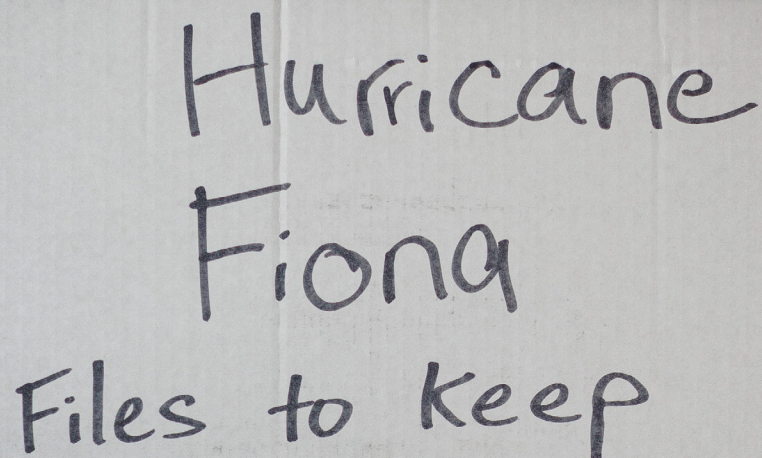 Hurricane
Fiona
Files to keep